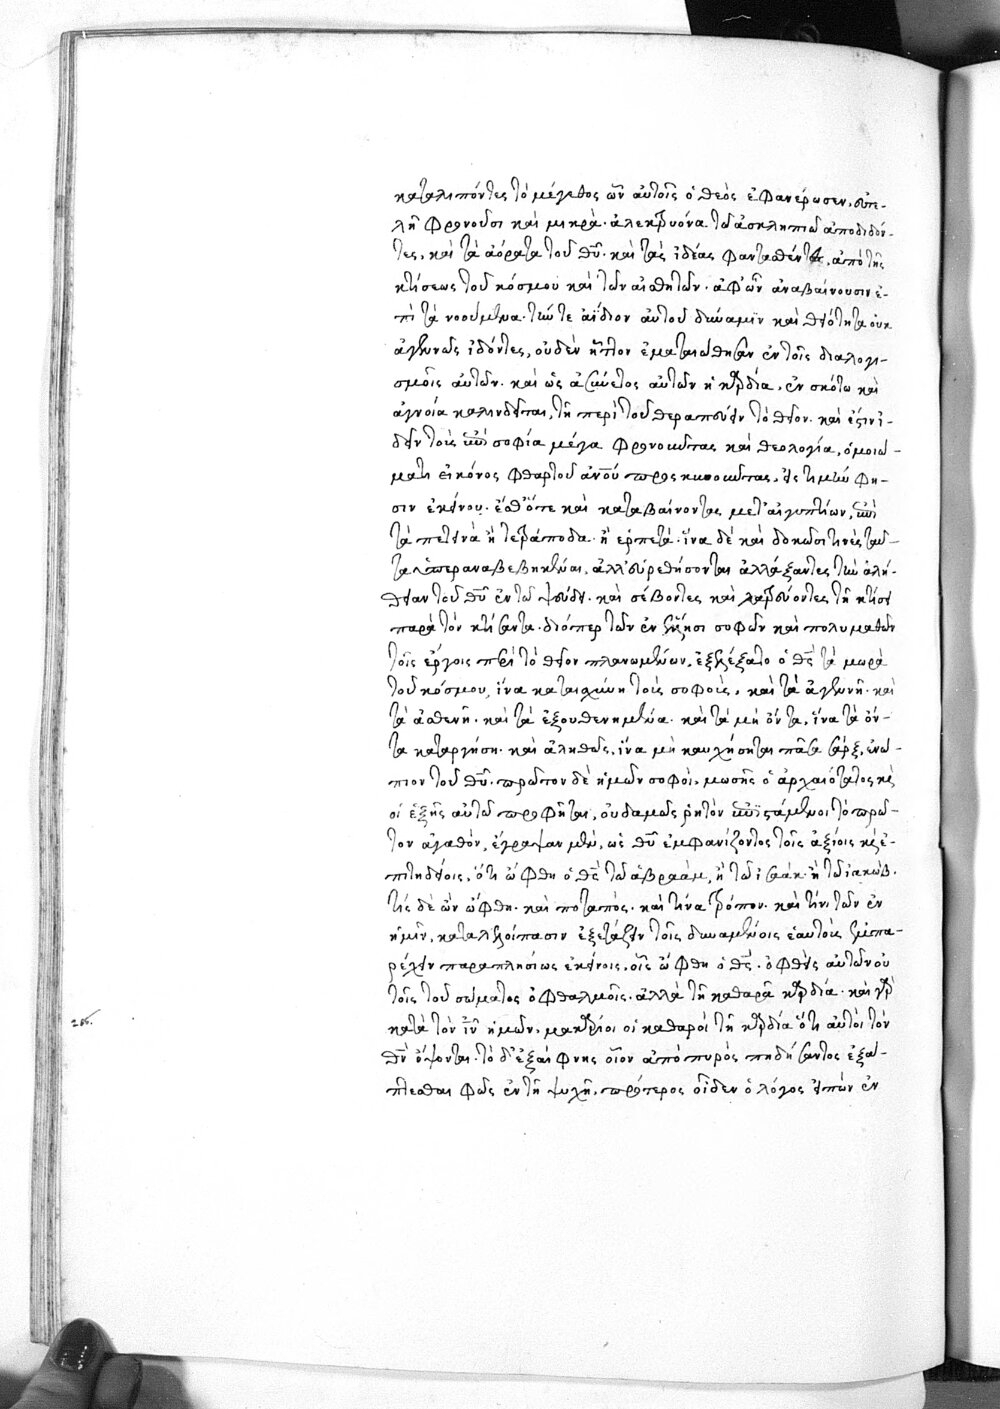 καταλιπόντες τὸ μέγεθος ὧν αὐτοῖς ὁ θεὸς ἐφανέρωσεν, εὐτε-
λῆ φρονοῦσι καὶ μικρὰ· ἀλεκτρυόνα τῶ ἀσκληπιῶ ἀποδιδόν-
τες, καὶ τὰ ἀόρατα τοῦ θῦ· καὶ τὰς ἰδέας φαντασθέντες, ἀπὸ τῆς
κτίσεως τοῦ κόσμου καὶ τῶν αἰσθητῶν· ἀφ' ὧν ἀναβαίνουσιν ἐ-
πὶ τὰ νοούμενα· τήν τε ἀΐδιον αὐτοῦ δύναμιν καὶ θειότητα οὐκ
ἀγεννῶς ἰδόντες, οὐδὲν ἧττον ἐματαιώθησαν ἐν τοῖς διαλογι-
σμοῖς αὐτῶν· καὶ ὡς ἀσύνετος αὐτῶν ἡ καρδία, ἐν σκότω καὶ
ἀγνοία καλινδεῖται, τῆ περὶ τοῦ θεραπεύειν τὸ θεῖον· καὶ ἔστιν ἰ-
δεῖν τοὺς ἐπὶ σοφία μέγα φρονοῦντας καὶ θεολογία, ὁμοιώ-
ματι εἰκόνος φθαρτοῦ ἀνοῦ προσκυνοῦντας, εἰς τιμήν φη-
σιν ἐκείνου· ἔσθ' ὅτε καὶ καταβαίνοντας μετ' αἰγυπτίων, ἐπὶ
τὰ πετεινὰ ἢ τετράποδα· ἢ ἑρπετά· ἵνα δὲ καὶ δοκῶσι τινὲς ταῦ-
τα ὑπεραναβεβηκέναι, ἀλλ' εὑρεθήσονται ἀλλάξαντες τὴν ἀλή-
θειαν τοῦ θῦ ἐν τῶ ψεύδει· καὶ σέβοντες καὶ λατρεύοντες τῆ κτίσει
παρὰ τὸν κτίσαντα· διόπερ τῶν ἐν ἕλλησι σοφῶν καὶ πολυμαθῶν
τοῖς ἔργοις περὶ τὸ θεῖον πλανωμένων, ἐξελέξατο ὁ θς τὰ μωρὰ
τοῦ κόσμου, ἵνα καταισχύνη τοὺς σοφούς, καὶ τὰ ἀγενῆ· καὶ
τὰ ἀσθενῆ· καὶ τὰ ἐξουθενημένα· καὶ τὰ μὴ ὄντα, ἵνα τὰ ὄν-
τα καταργήση· καὶ ἀληθῶς, ἵνα μὴ καυχήσηται πᾶσα σάρξ, ἐνώ-
πιον τοῦ θῦ· πρῶτον δὲ ἡμῶν σοφοὶ, μωσῆς ὁ ἀρχαιότατος κὶ
οἱ ἑξῆς αὐτῶ προφῆται, οὐδαμῶς ῥητὸν ἐπιστάμενοι τὸ πρῶ-
τον ἀγαθὸν, ἔγραψαν μὲν, ὡς θῦ ἐμφανίζοντος τοῖς ἀξίοις κὶ ἐ-
πιτηδείοις, ὅτι ὤφθη ὁ θς τῶ ἀβραὰμ, ἢ τῶ ἰσαάκ· ἢ τῶ ἰακώβ·
τίς δὲ ὢν ὤφθη· καὶ ποταπὸς· καὶ τίνα τρόπον· καὶ τίνι τῶν ἐν
ἡμῖν, καταλελοίπασιν ἐξετάζειν τοῖς δυναμένοις ἑαυτοὺς ἐμπα-
ρέχειν παραπλησίως ἐκείνοις, οἷς ὤφθη ὁ θς· ὀφθεὶς αὐτῶν οὐ
τοῖς τοῦ σώματος ὀφθαλμοῖς· ἀλλὰ τῆ καθαρᾶ καρδία· καὶ γὰρ
κατὰ τὸν ἰν ἡμῶν, μακάριοι οἱ καθαροὶ τῆ καρδία ὅτι αὐτοὶ τὸν
θν ὄψονται· τὸ δ' ἐξαίφνης οἷον ἀπὸ πυρὸς πηδήσαντος ἐξά-
πτεσθαι φῶς ἐν τῆ ψυχῆ, πρότερος οἶδεν ὁ λόγος εἰπὼν ἐν